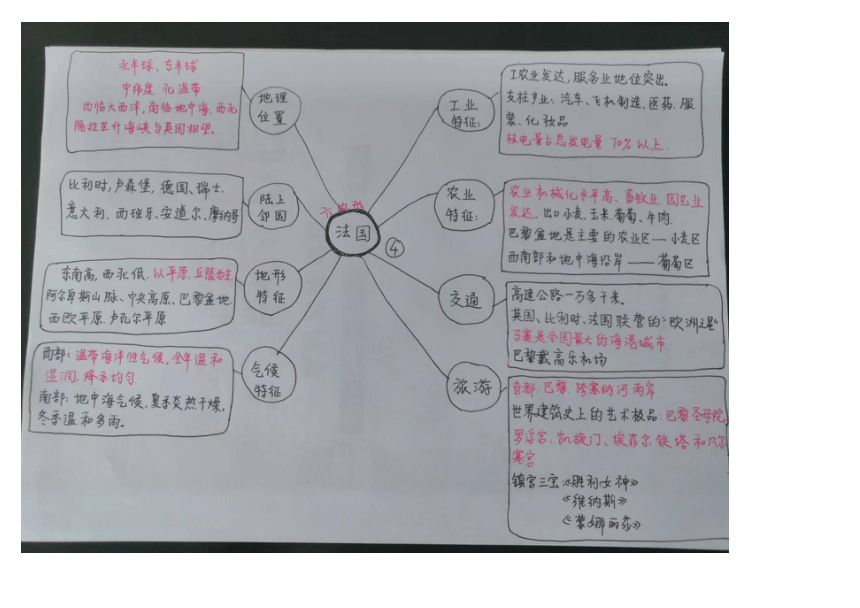 北半球、东半球
中纬度、北温带
西临大西洋,南临地中海,西北
隔拉芒什海峡与英国相望。
地理
位置
比利时,卢森堡,德国、瑞士、
意大利、西班牙、安道尔、摩纳哥
陆上
邻国
东南高,西北低.以平原、丘陵为主
阿尔卑斯山脉、中央高原、巴黎盆地.
西欧平原.卢瓦尔平原
地形
特征
西部:温带海洋性气候,全年温和
湿润.降水均匀.
南部:地中海气候,夏季炎热干燥,
冬季温和多雨。
气候
特征
六边形
法国
④
工业
特征:
工农业发达,服务业地位突出。
支柱产业:汽车、飞机制造.医药.服
装、化妆品
核电量占总发电量 70%以上.
农业
特征:
农业机械化水平高、畜牧业.园艺业
发达、出口小麦、玉米、葡萄、牛肉.
巴黎盆地是主要的农业区——小麦区
西南部和地中海沿岸——葡萄区
交通
高速公路一万多千米。
英国、比利时、法国联营的"欧洲之星"
马赛是全国最大的海港城市
巴黎戴高乐机场
旅游
首都:巴黎.跨塞纳河两岸.
世界建筑史上的艺术极品:巴黎圣母院,
罗浮宫、凯旋门、埃菲尔铁塔和凡尔
赛宫
镇宫三宝:《胜利女神》
《维纳斯》
《蒙娜丽莎》